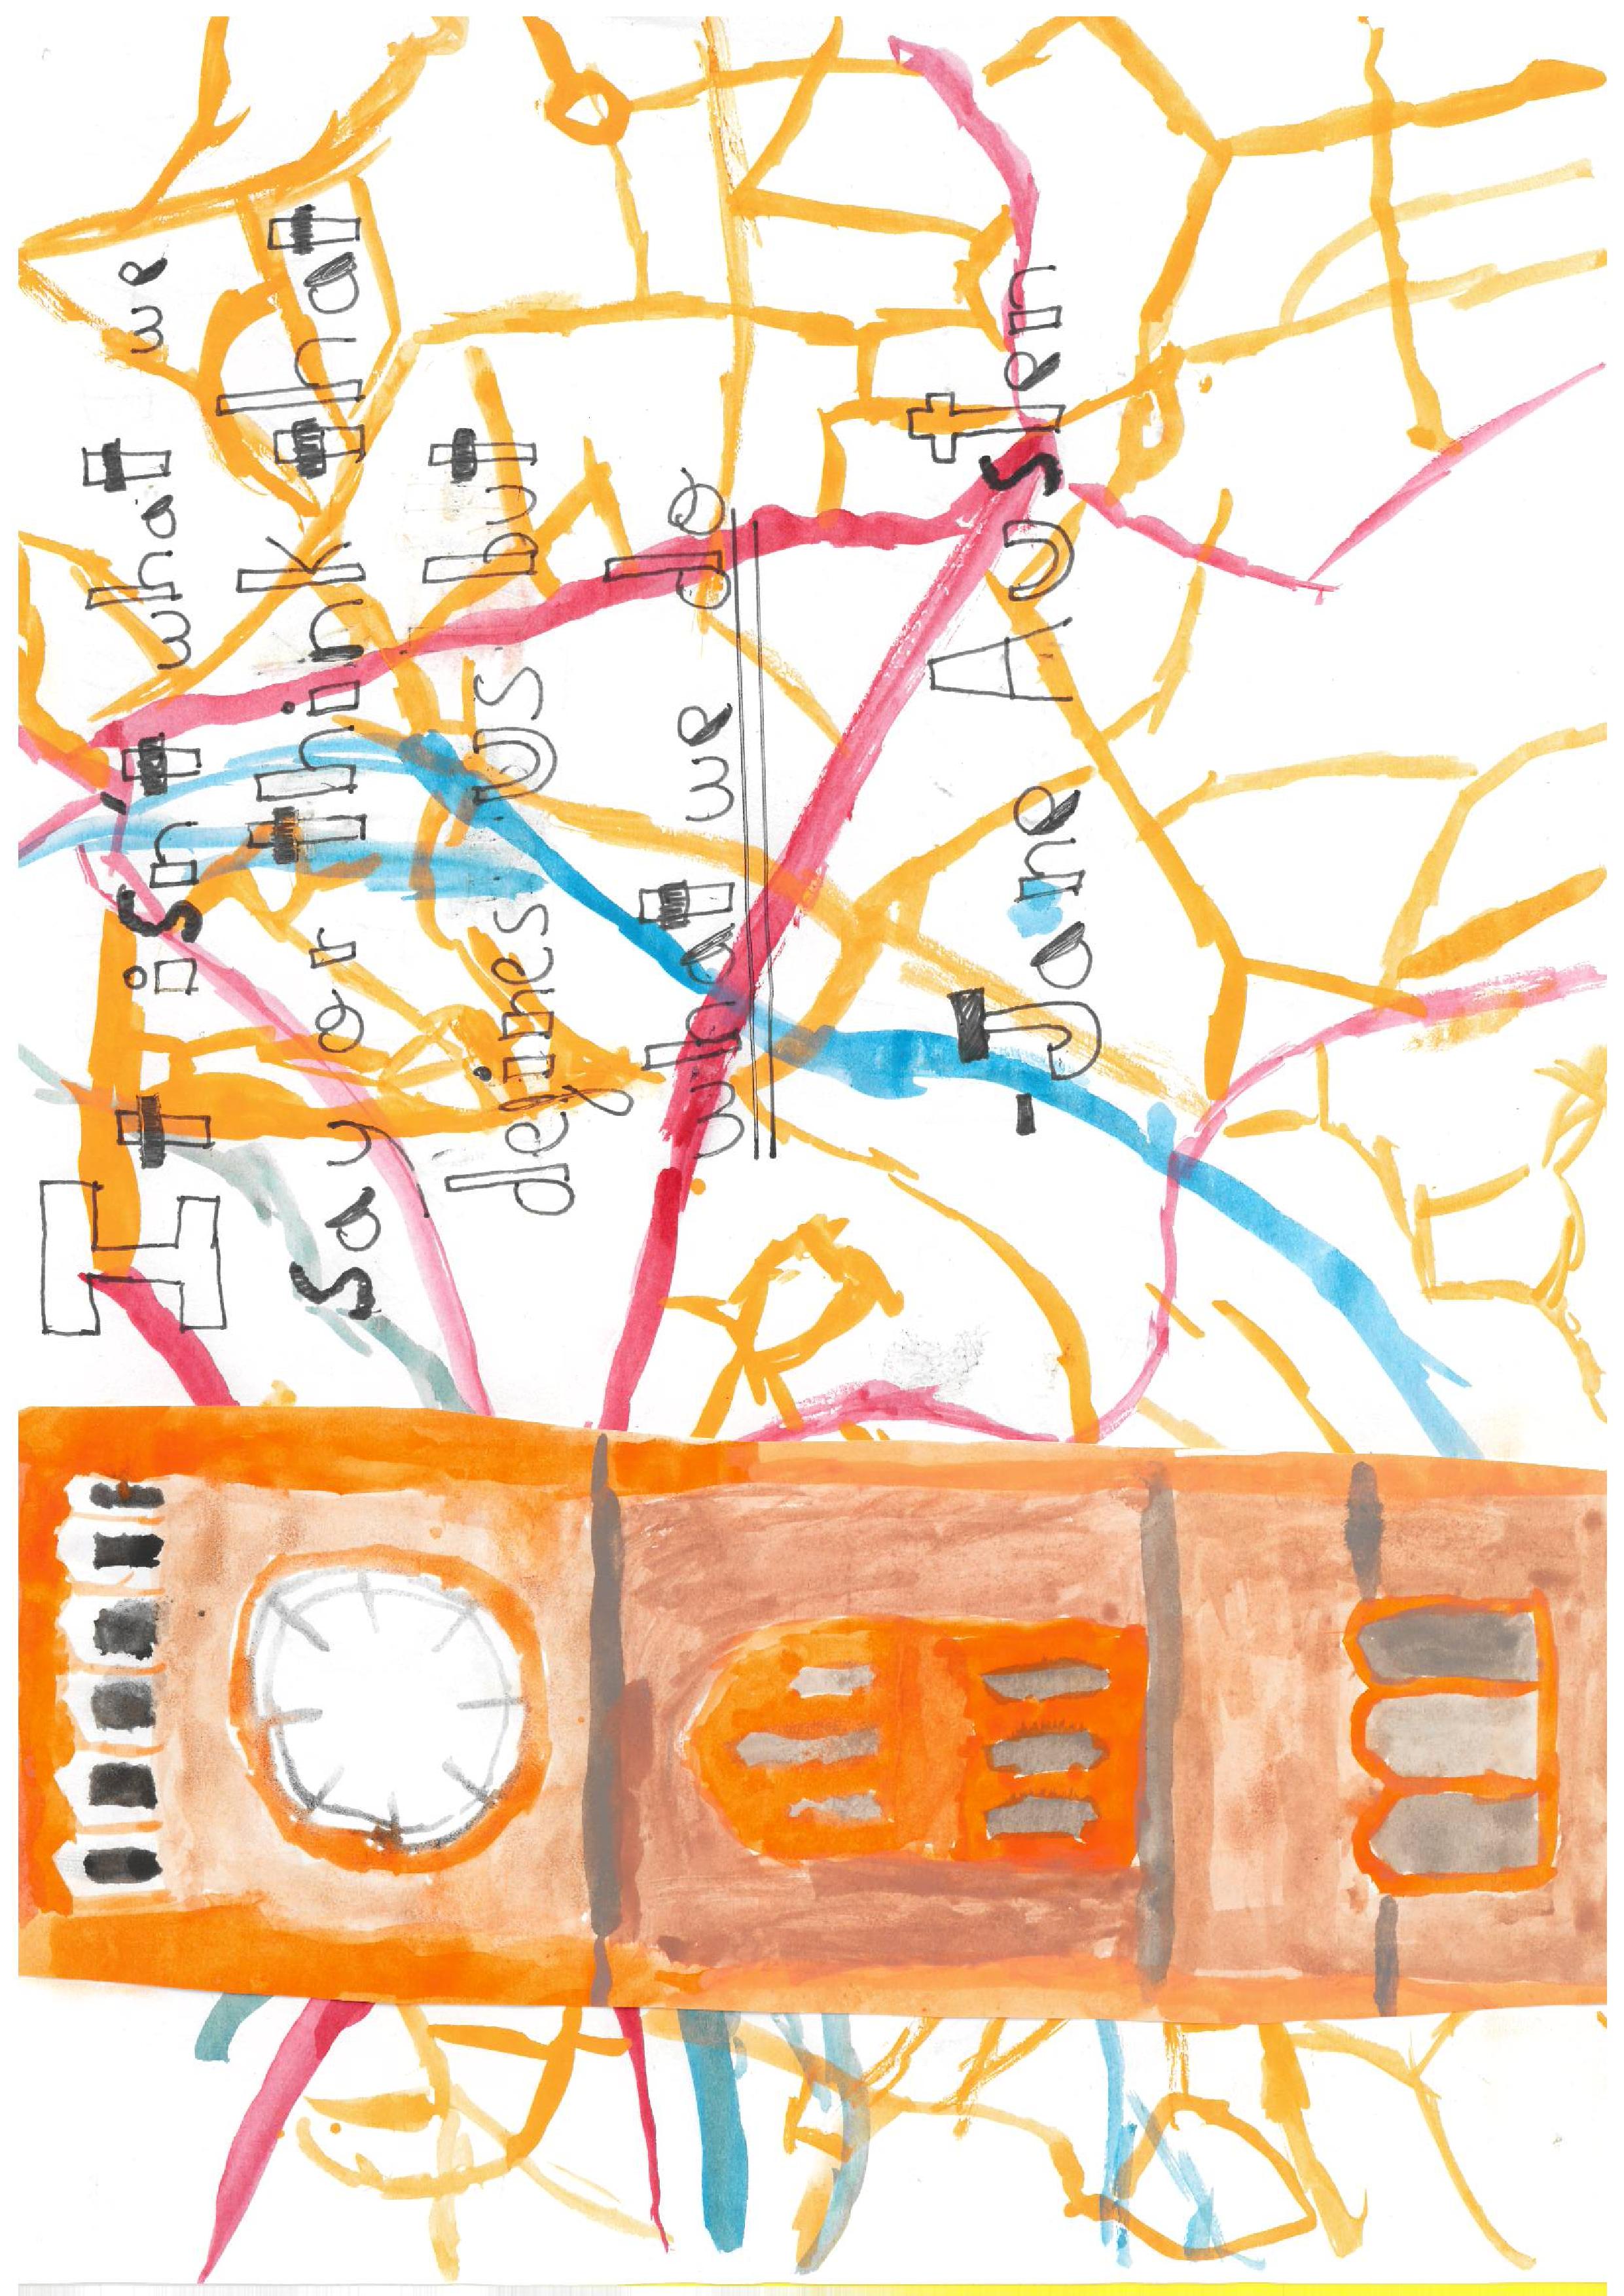 It isn't what we
say or think that
defines us but
what we do
-Jane Austen